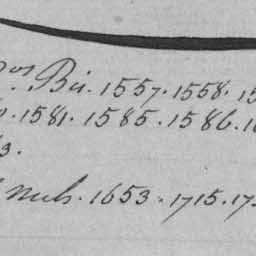 os Bci. 1557. 1558. 15
. 1581. 1585. 1586. 1
3.
Mich. 1653. 1715. 17